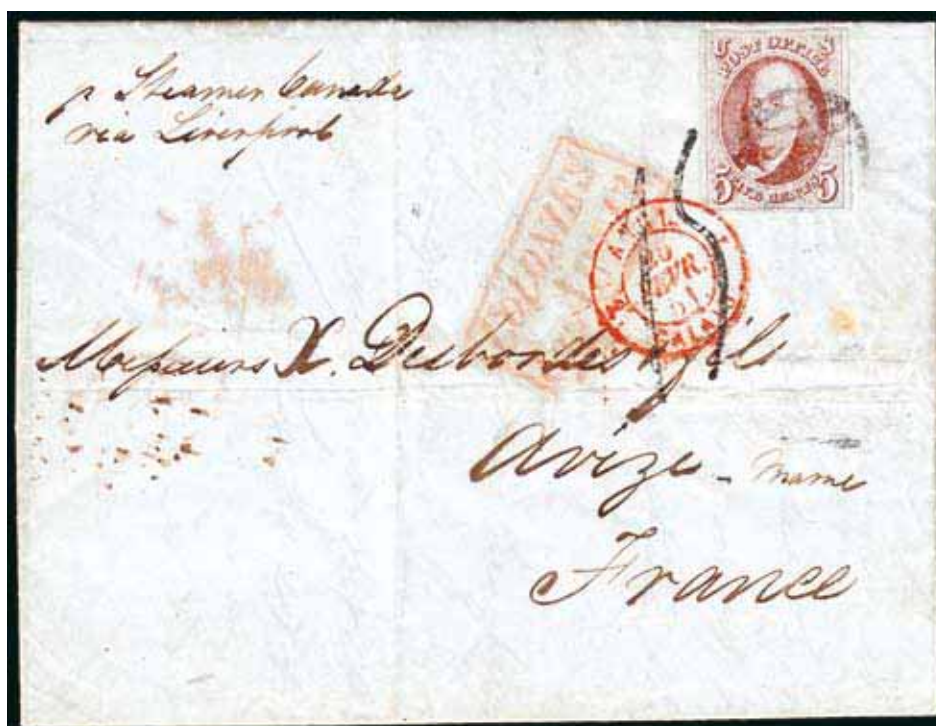 p Steamer Canada
via Liverpool
5 5
POST OFFICE
5 FIVE CENTS 5
COLONIES
15
51
Messieurs X. Desbordes & fils
Avize - Marne
France